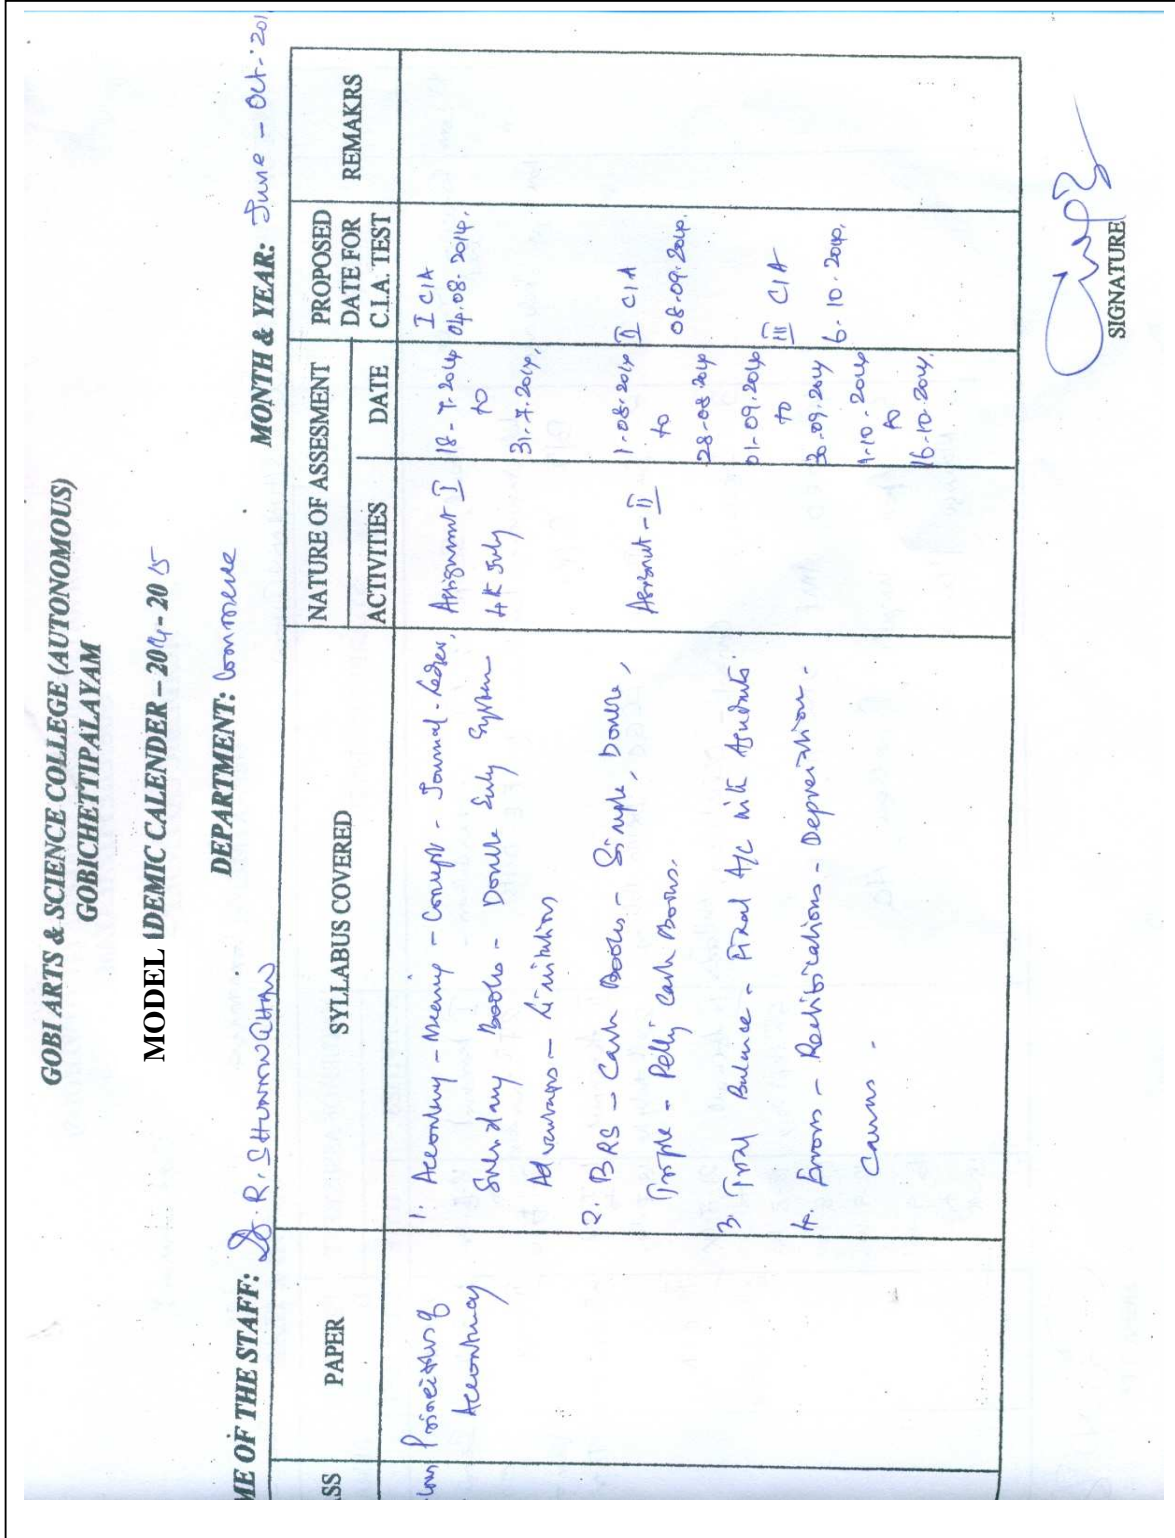 GOBI ARTS & SCIENCE COLLEGE (AUTONOMOUS)
GOBICHETTIPALAYAM
MODEL \DEMIC CALENDER – 2014 - 2015
ME OF THE STAFF: R.
DEPARTMENT: Commerce
MONTH & YEAR: June - Oct-'201
ASS
PAPER
SYLLABUS COVERED
NATURE OF ASSESMENT
ACTIVITIES
DATE
PROPOSED
DATE FOR
C.I.A. TEST
REMAKRS
Principles of
Accountancy
1. Accountancy - Meaning - Concept - Journal - Ledger,
Subsidiary Books - Double Entry System
Advantages - Limitations
2. BRS - Cash Books - Simple, Double,
Triple - Petty Cash Books.
3. Trial Balance - Final A/c with
4. Errors - Rectifications - Depreciation -
Causes -
Assignment I
4th July
- II
18-7-2014
to
31-7-2014,
1-08-2014
to
28-08-2014
01-09-2014
to
30-09-2014
1-10-2014
to
16-10-2014.
I CIA
04.08-2014,
II CIA
08-09-2014.
III CIA
6-10-2014,
SIGNATURE